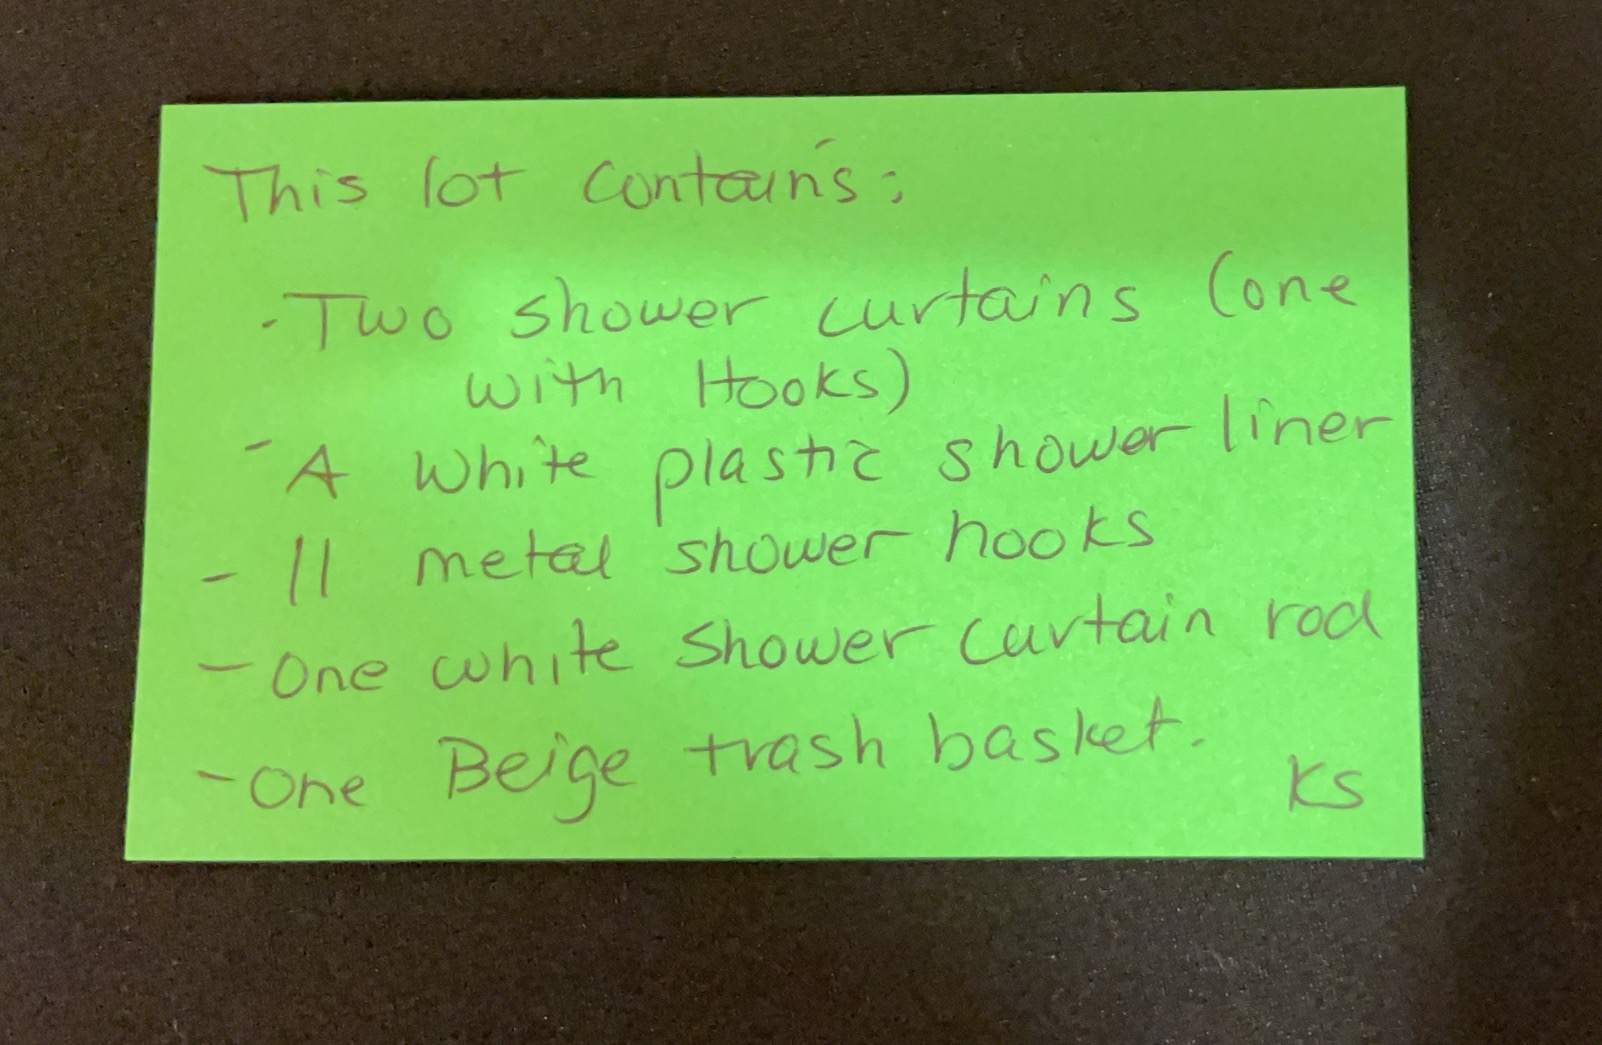 This lot contains:
- Two shower curtains (one
with Hooks)
- A white plastic shower liner
- 11 metal shower hooks
- One white shower curtain rod
- One Beige trash basket.
KS